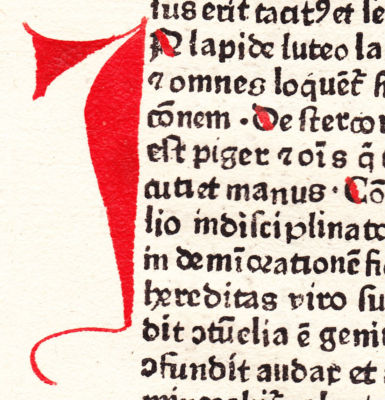 ius erit tacitꝰ et
IN lapide luteo la
⁊ omnes loquēt̄
cōnem · De ſterco
eſt piger ⁊ oīs q̄
cutiet manus · Cō
lio indiſciplinato
in demīoratōnē fi
hereditas viro ſu
dit ↄtūelia ē geni
ↄfundit audax et